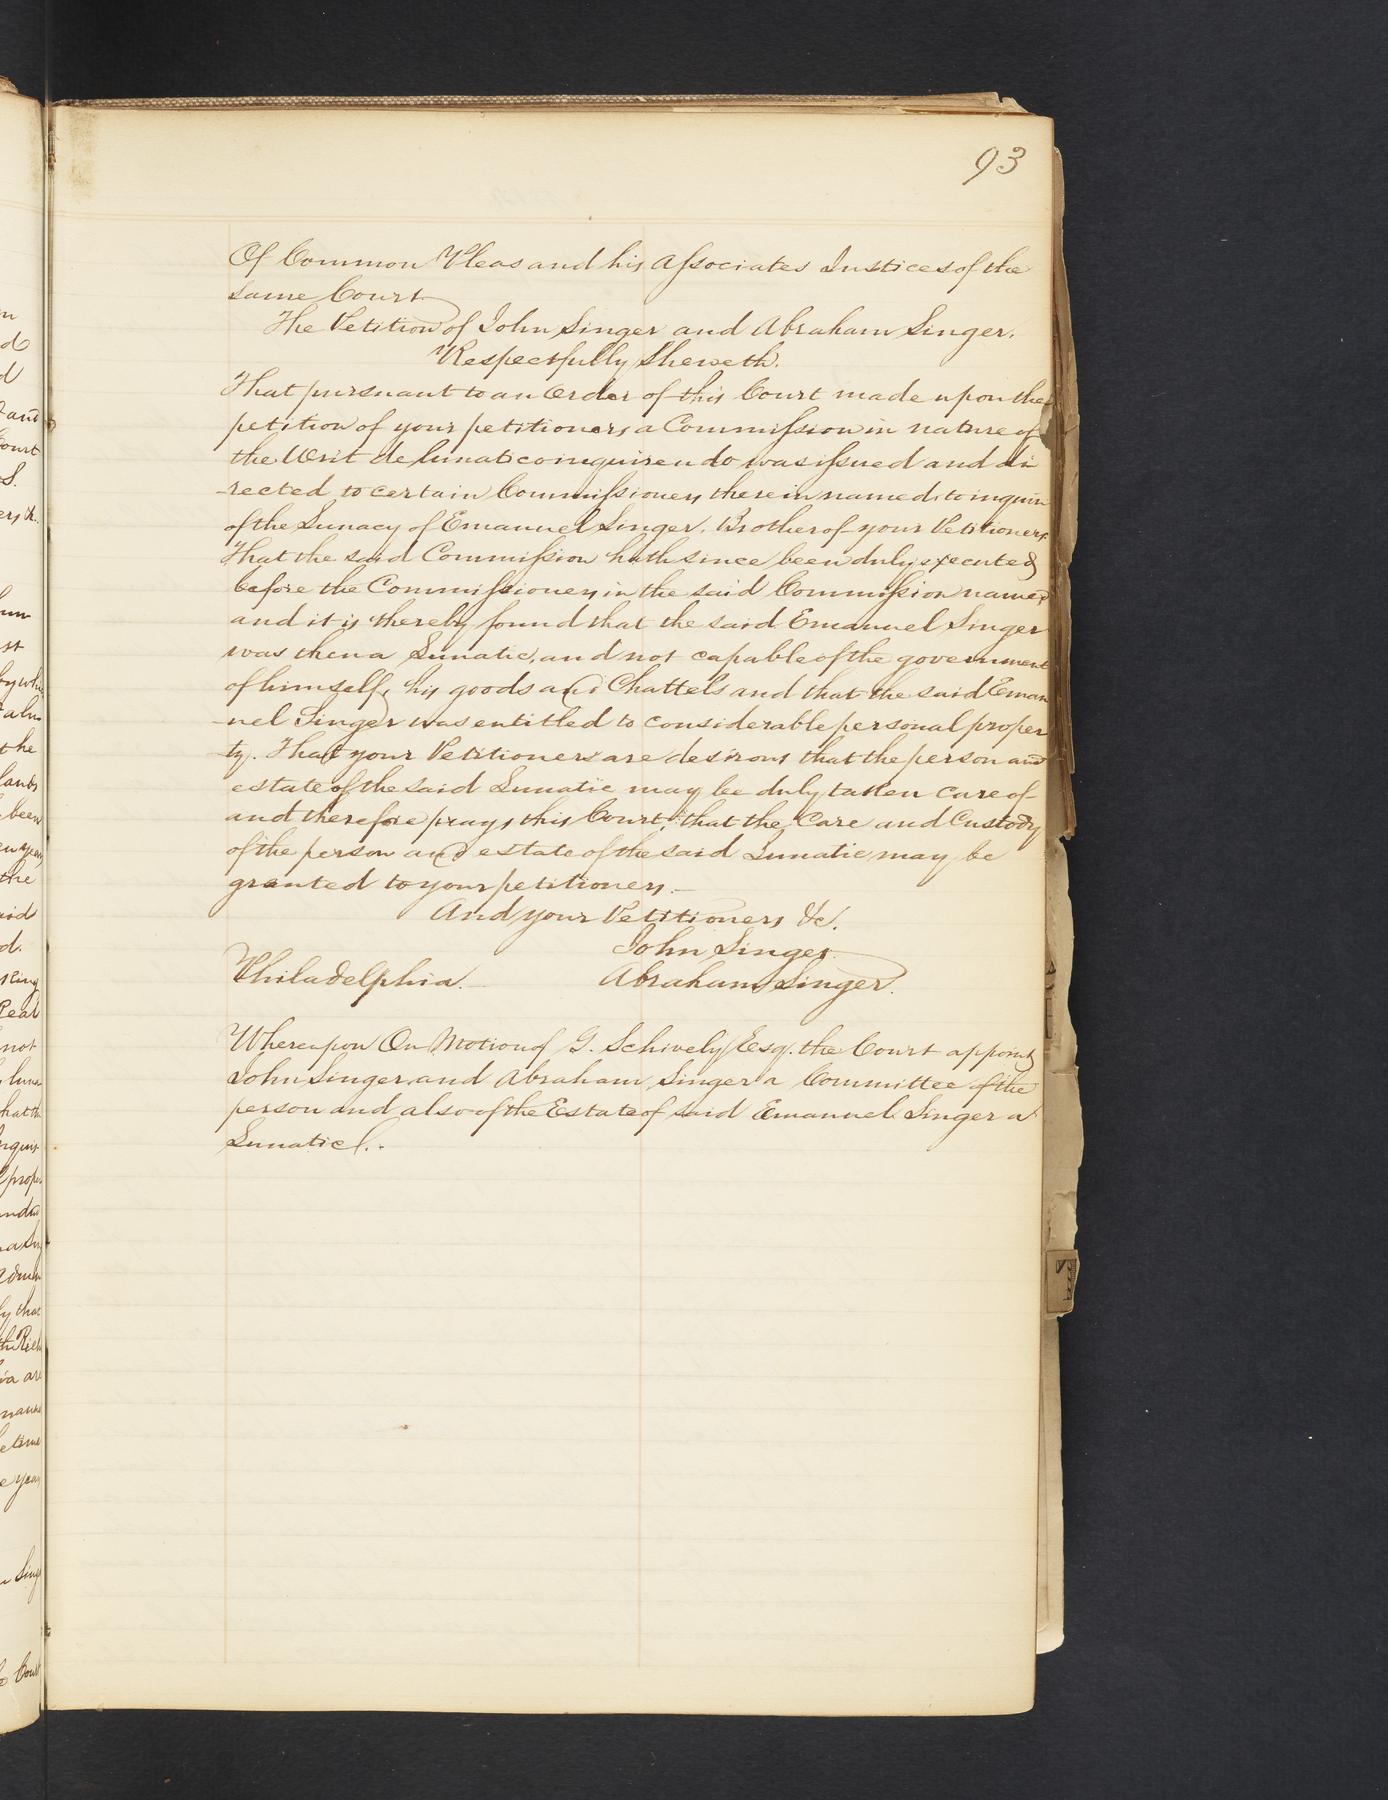 93
Of Common Pleas and his Associates Justices of the
same Court
The Petition of John Singer and Abraham Singer.
Respectfully Sheweth.
That pursuant to an Order of this Court made upon the
petition of your petitioners a Commission in nature of
the Writ de lunatico inquirendo was issued and di
-rected to certain Commissioners therein named, to inquire
of the Lunacy of Emanuel Singer, Brother of your Petitioners
That the said Commission hath since been duly executed
before the Commissioners in the said Commission named
and it is thereby found that the said Emanuel Singer
was then a Lunatic, and not capable of the government
of himself, his goods and Chattels and that the said Eman
-uel Singer was entitled to considerable personal proper
-ty. That your Petitioners are desirous that the person and
estate of the said Lunatic may be duly taken care of
and therefore prays this Court, that the Care and Custody
of the person and estate of the said Lunatic may be
granted to your petitioners.
And your Petitioners &c.
John Singer
Philadelphia. Abraham Singer.
Whereupon On Motion of G. Schively Esq. the Court appoint
John Singer and Abraham Singer a Committee of the
person and also of the Estate of said Emanuel Singer a
Lunatic.